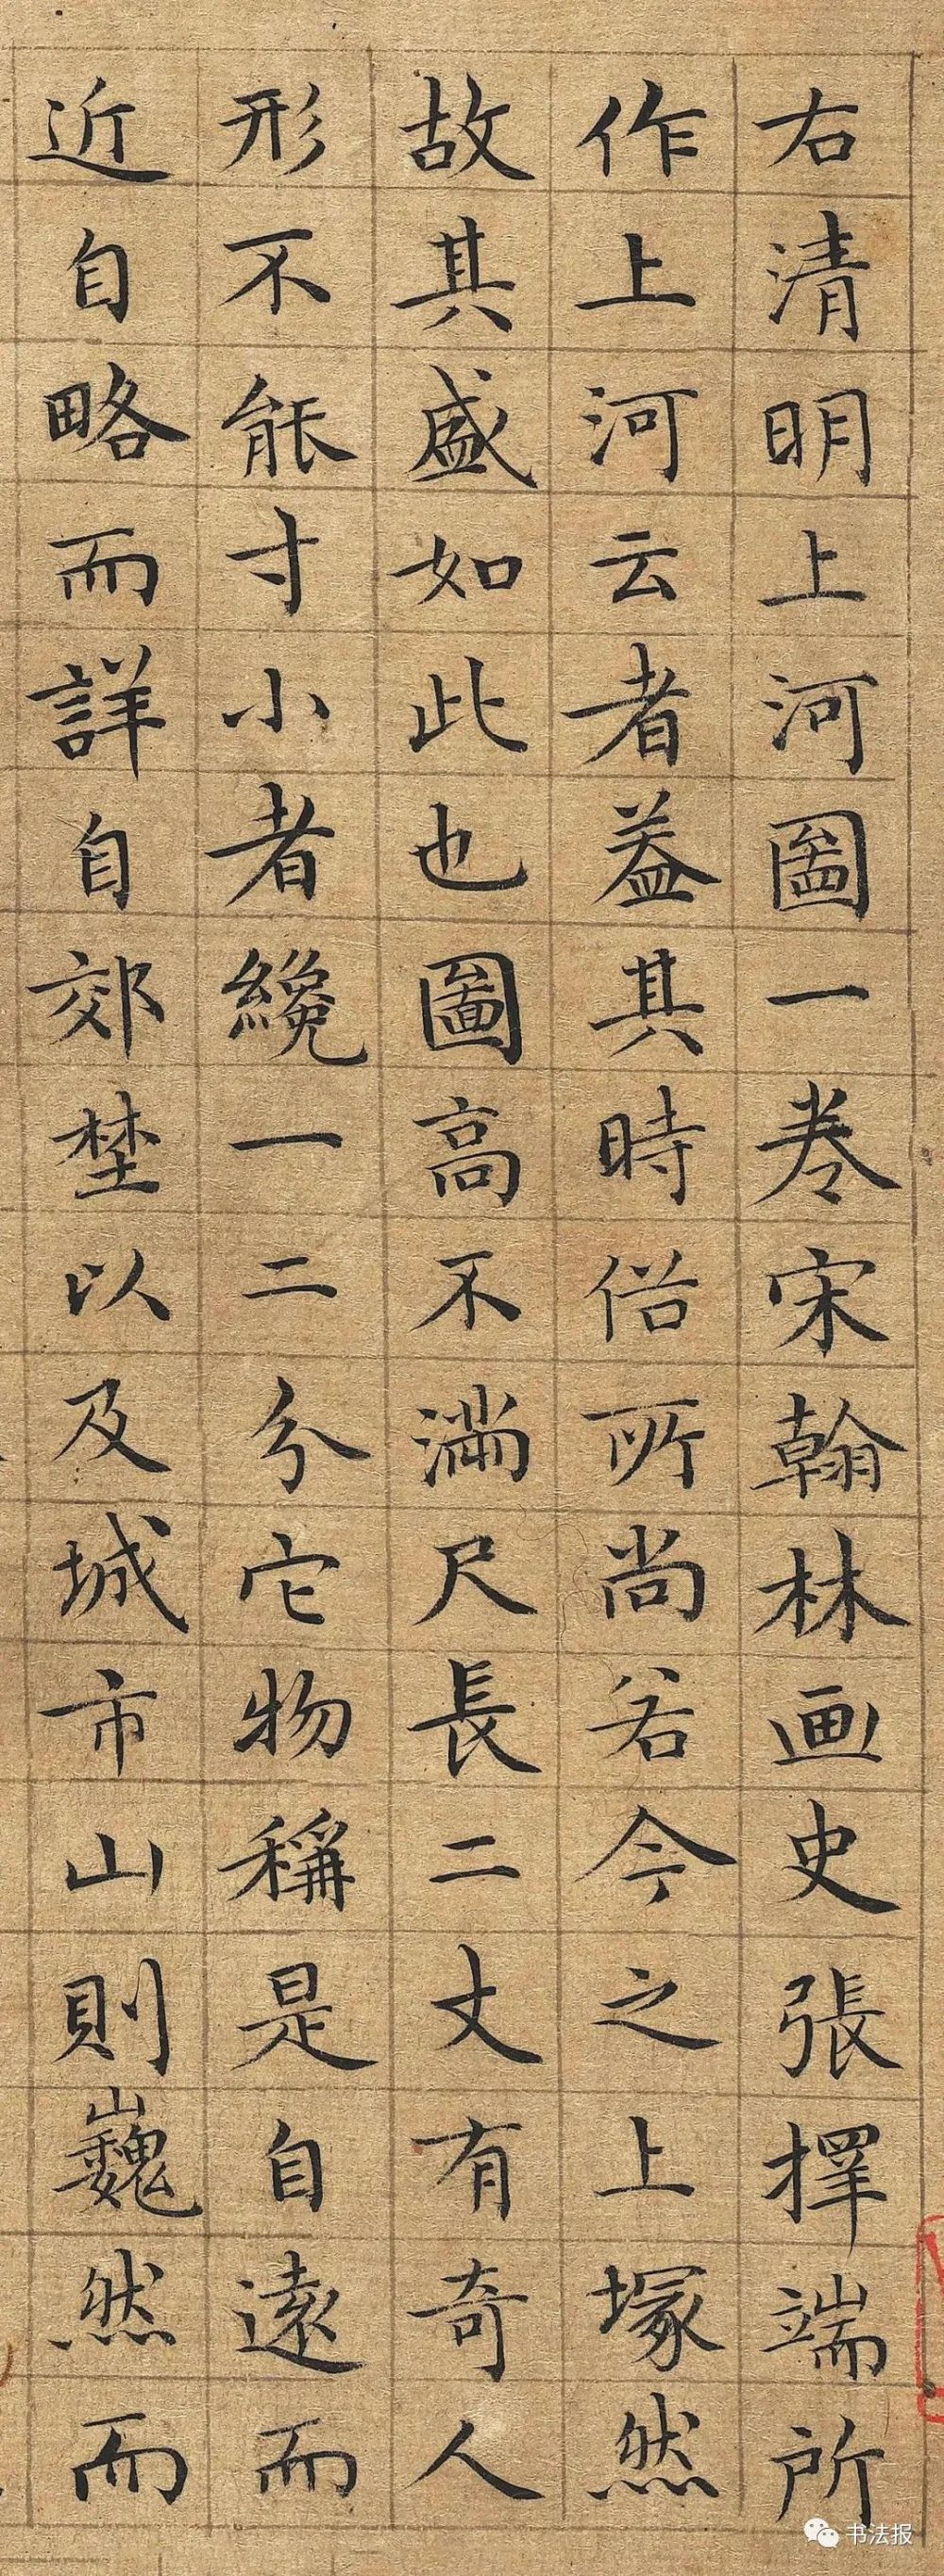 右清明上河圗一卷宋翰林画史張擇端所
作上河云者葢其時俗所尚若今之上塚然
故其盛如此也圖高不滿尺長二丈有奇人
形不能寸小者纔一二分它物稱是自遠而
近自略而詳自郊埜以及城市山則巍然而
书法报